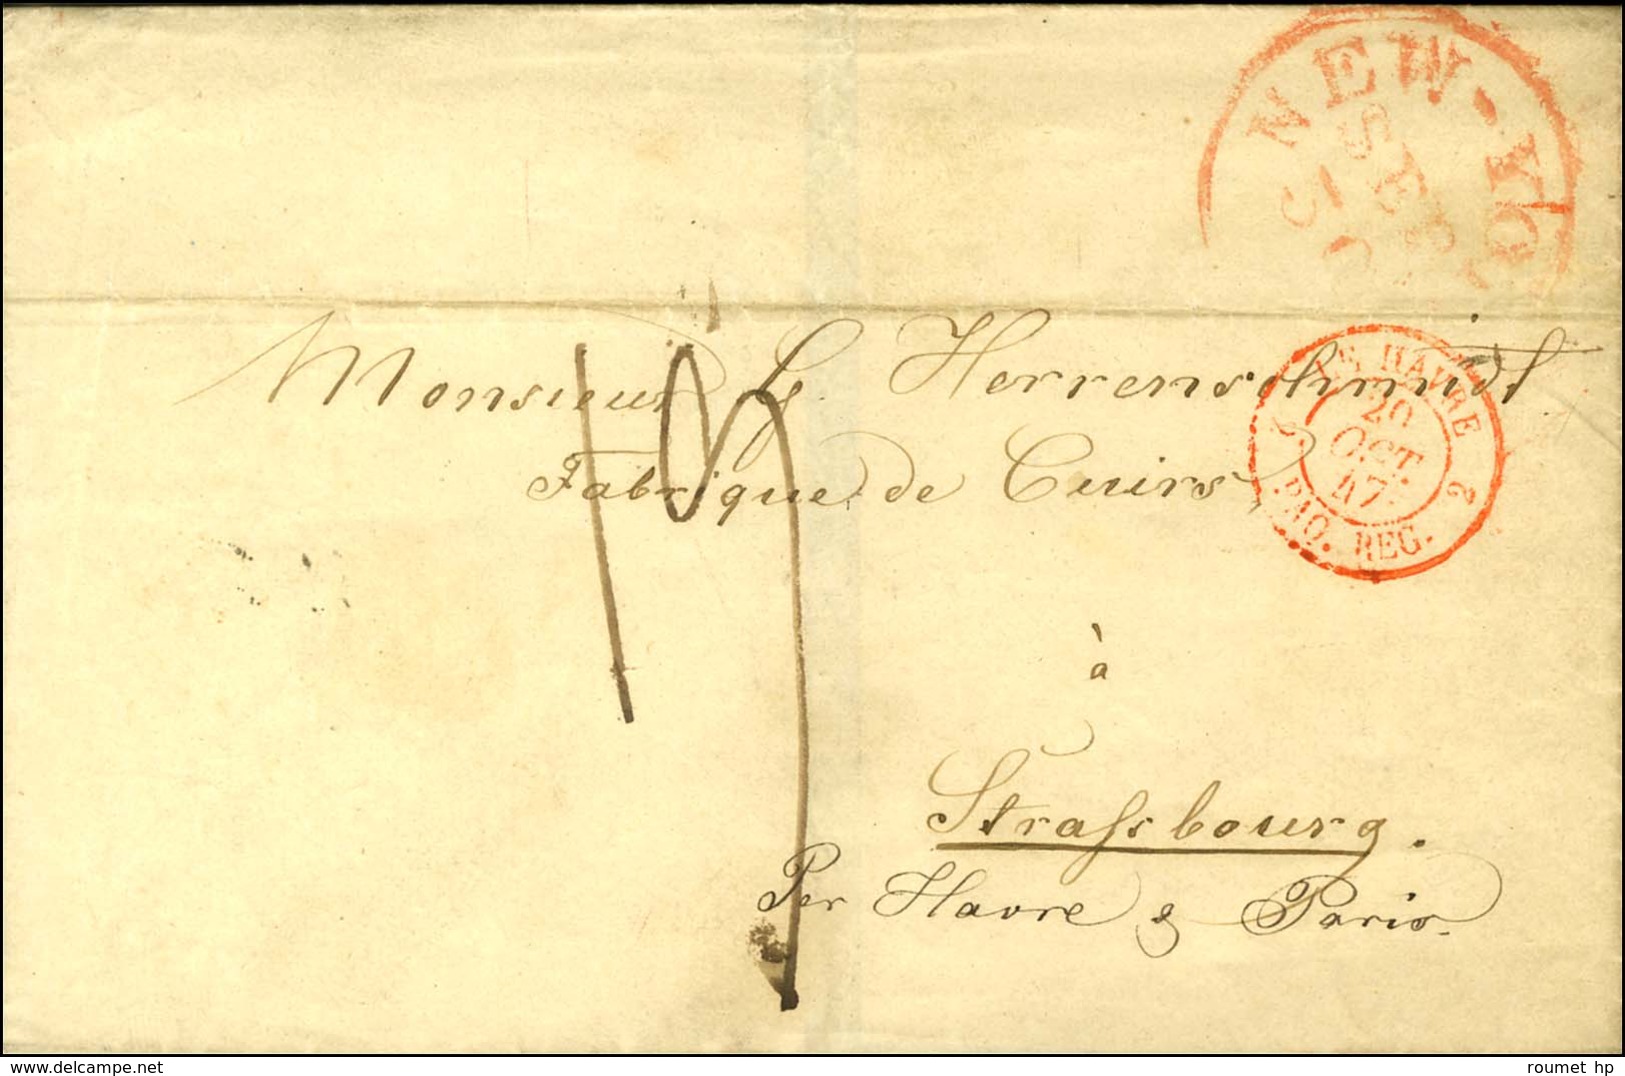 NEW-YO
SEP
Monsieur G. Herrenschmidt
Fabrique de Cuirs
LE HAVRE
20
OCT.
47
2
PAQ. REG.
19
à
Strassbourg.
Per Havre & Paris.
delcampe.net
roumet hp